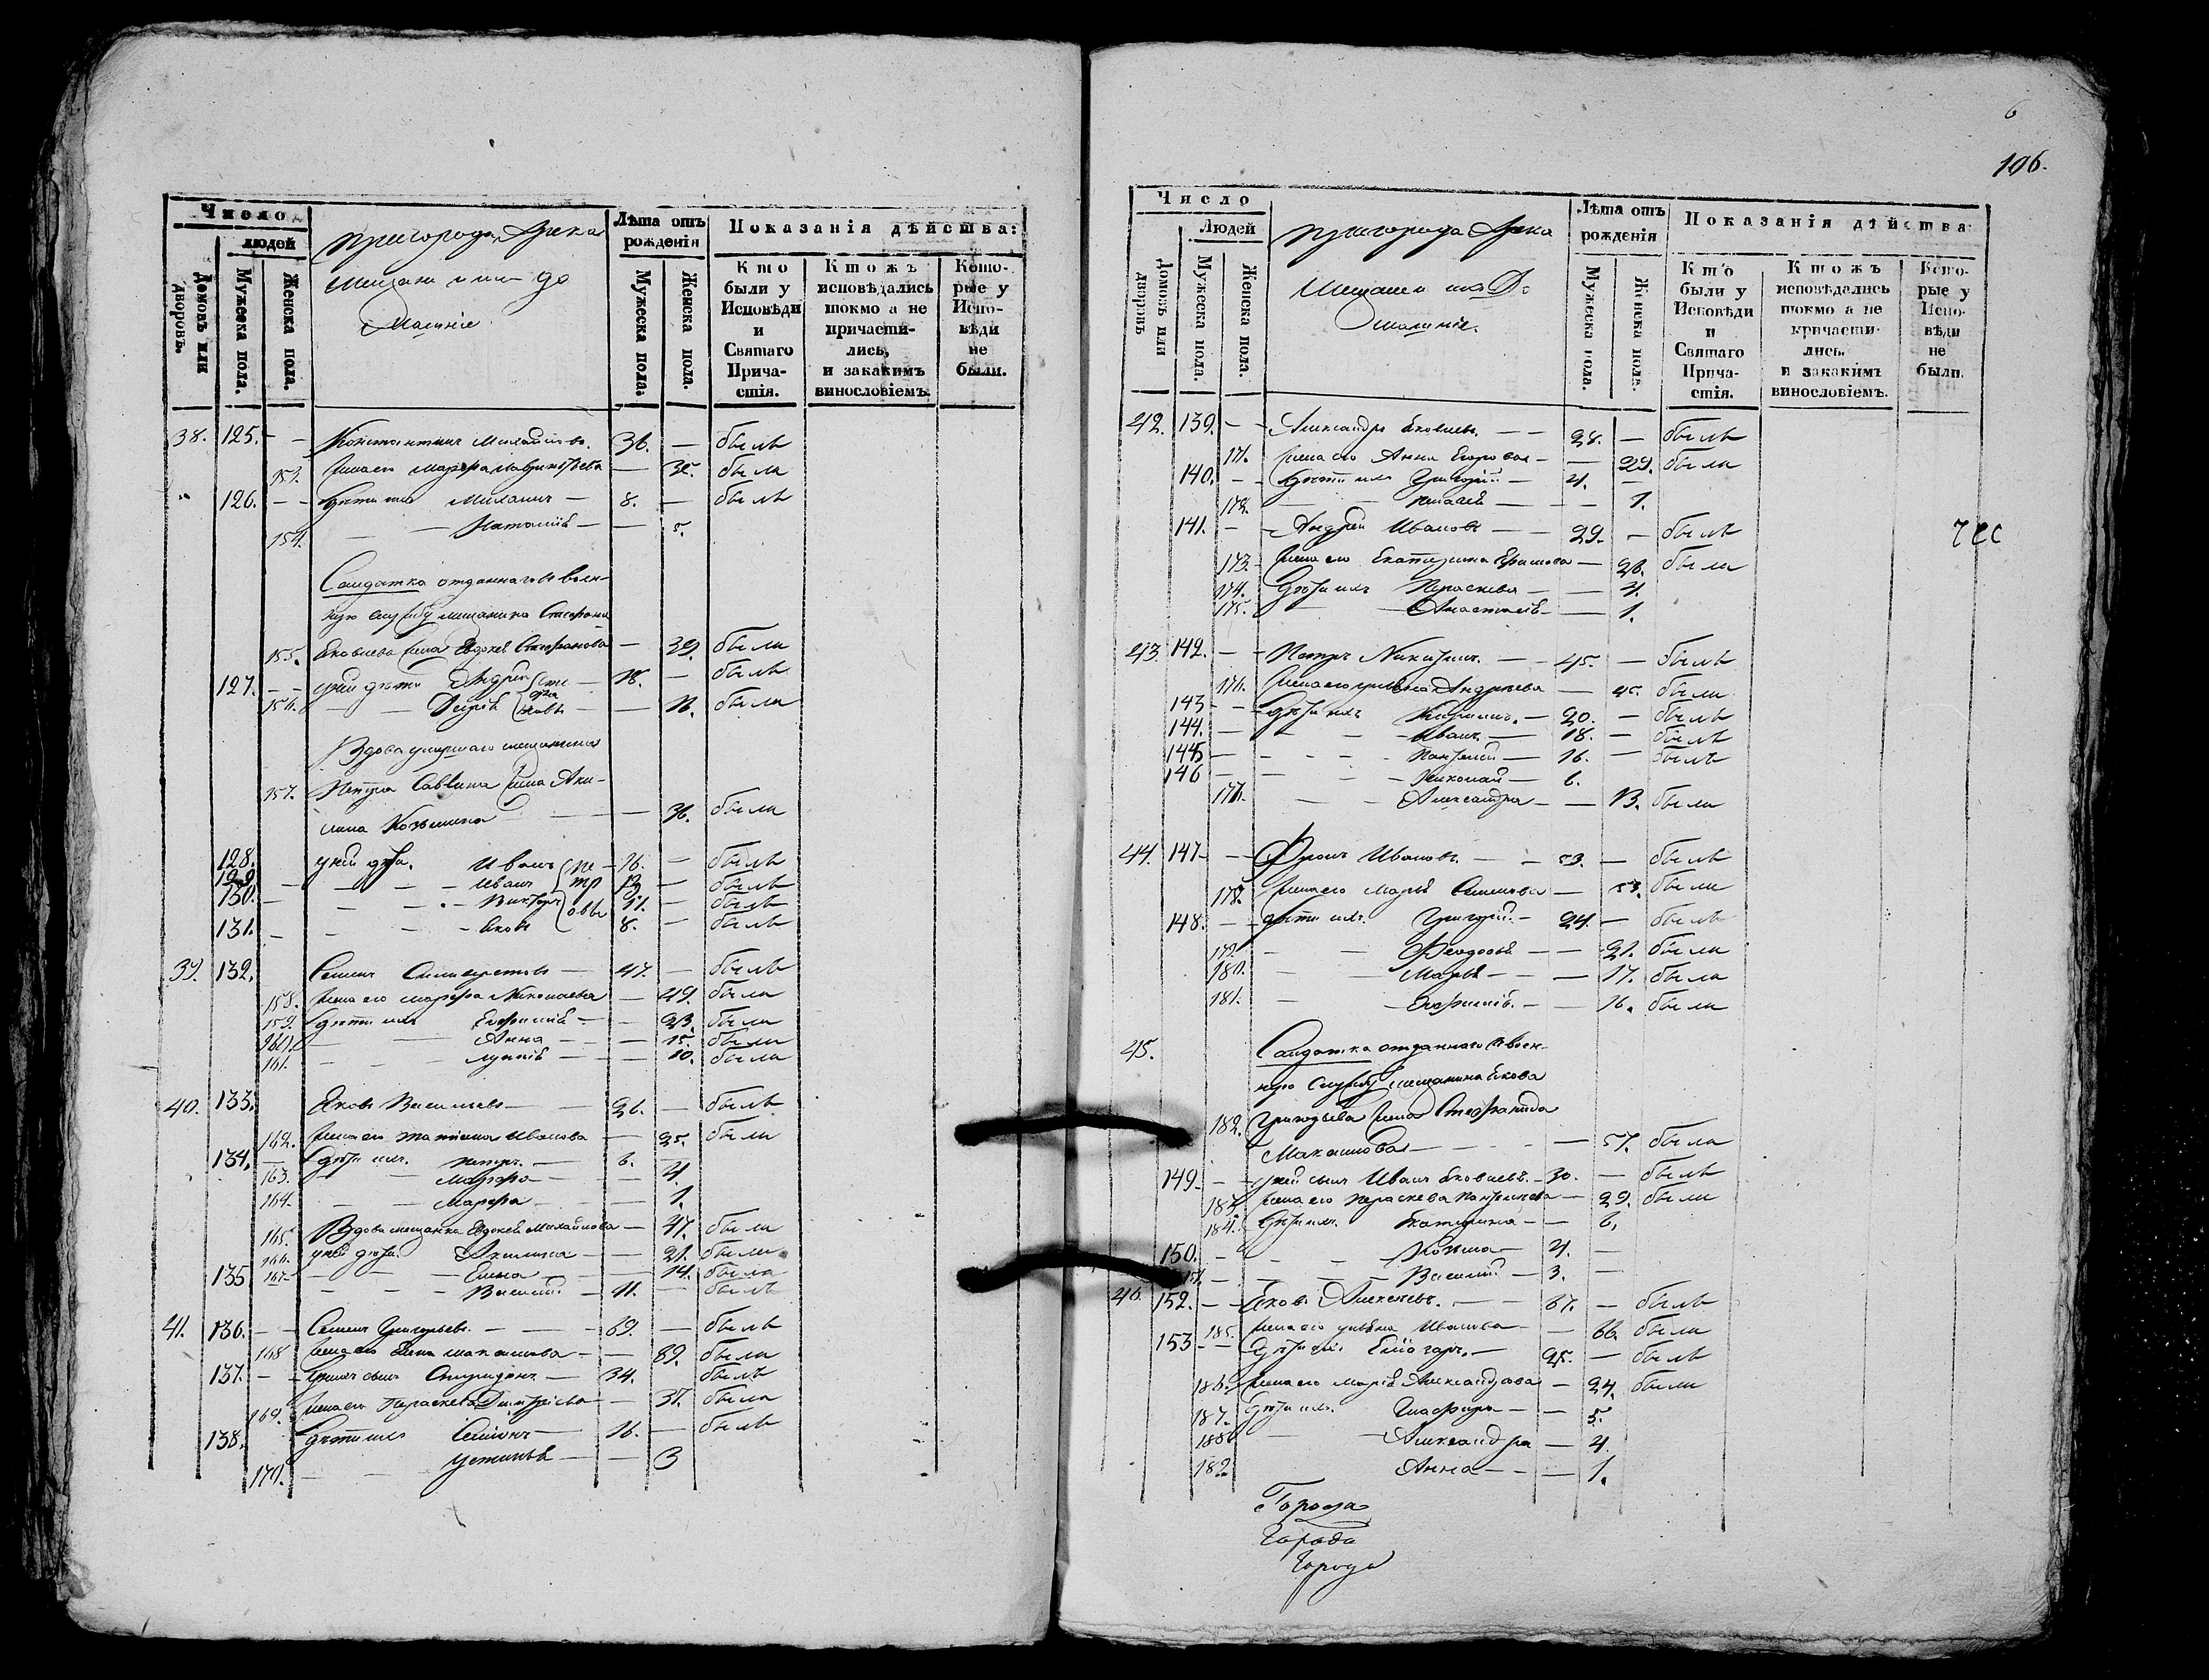 Число
людей
Домовъ или дворовъ.
Мужеска пола.
Женска пола.
пригорода Арска
Мещане и ихъ до
машніе
Лѣта отъ рожденія
Мужеска пола.
Женска пола.
Показанія дѣйства:
Кто были у Исповѣди и Святаго Прича- стія.
Ктожъ исповѣдались токмо а не причасти- лись, и закакимъ винословіемъ.
Кото- рые у Испо- вѣди не были.
38. 125. – – Константинъ 36. – былъ
153. жена его Марѳа – 35. была
126. – – дѣти ихъ 8. – былъ
154. – – Наталія – – 5.
Салдатка отданнаго въ воен-
ную службу мещанина Стефана
155. Яковлева жена Евдокія Стефанова – 39. была
127. – – ея дѣти Андрей 18. – былъ
156. – – 16. была
Вдова умершаго мещанина
157. Петра Саввина жена Аки-
лина Козьмина – – 36. была
128. ея дѣти. Иванъ – 16. – былъ
129. – – – Иванъ – былъ
130. – – – Викторъ 11. – былъ
131. – – – Яковъ 8. – былъ
39. 132. Семенъ 47. – былъ
158. жена его Марѳа Николаева – 49. была
159. дѣти ихъ Евфимія – – 23. была
160. – – Анна – – 15. была
161. – – – – 10. была
40. 133. Яковъ Васильевъ – – 26. – былъ
162. жена его Татіана Иванова – 25. была
134. дѣти ихъ. Петръ. – 6. –
163. – – Марѳа – – 4.
164. – – Марѳа – – 1.
165. Вдова мещанка Евдокія Михайлова – 47. была
166. ея дѣти. Акилина – – 21. была
167. – – – Елена – – 14. была
135 – – – Василій – 11. – былъ
41. 136. – – Семенъ Григорьевъ. – – 69. – былъ
168 жена его Елена Максимова – – 89. была
137. – – Спиридонъ – 34. былъ
169. жена его Параскева Димитріева – – 37. была
138. дѣти ихъ Семіонъ – 16. – былъ
170. – – Устинья – – 3
6
196.
Число
Людей
Домовъ или дворовъ
Мужеска пола.
Женска пола.
пригорода Арска
Мещане и ихъ До
машніе.
Лѣта отъ рожденія
Мужеска пола.
Женска пола.
Показанія дѣйства:
Кто были у Исповѣди и Святаго Прича- стія.
Ктожъ исповѣдались токмо а не причасти- лись. и закакимъ винословіемъ.
Кото- рые у Испо- вѣди не были.
42. 139. – – Александръ Яковлевъ. – – 28. – былъ
171. жена его Анна Егорова – – 29. была
140. – – дѣти ихъ Григорій – 4. –
172. – – – – 1.
141. – – Андрей Ивановъ – – 29. – былъ
173. жена его Екатерина – 26. была
174. дѣти ихъ Параскева – – 4.
175. – – Анастасія – – 1.
43. 142. – – Петръ Никитинъ. – 45. – былъ
176. жена его Андреева – 45. была
143 – – дѣти ихъ – 20. – былъ
144. – – – Иванъ. – 18. – былъ
145 – – – – 16. – былъ
146 – – – Николай – 6.
177. – – Александра – – 13. была
44. 147. – – Фролъ Ивановъ. – – 53. – былъ
178. жена его Марья – 53. была
148. – – дѣти ихъ. Григорій – 24. – былъ
179. – – Феодосья – – 21. была
180. – – Марья – – – 17. была
181. – – Евфимія. – – 16. была
45. Салдатка отданнаго въ воен-
ную службу мещанина Якова
182. Григорьева жена Стефанида
Максимова – – – – 57. была
149. – – ея сынъ Иванъ Яковлевъ. – 30. – былъ
183. жена его Параскева – 29. была
184. дѣти ихъ. Екатерина – – 6.
150. – – – Козьма – 4. –
151. – – – – Василій – 3. –
46. 152. – – Яковъ Алексѣевъ. – – 67. – былъ
185. жена его Иванова – – 66. была
153 – – 25. – былъ
186. жена его Марія Александрова – 24. была
187. дѣти ихъ. – – 5.
188 – – Александра – 4.
182 Анна – – – 1.
Города
Города
Города